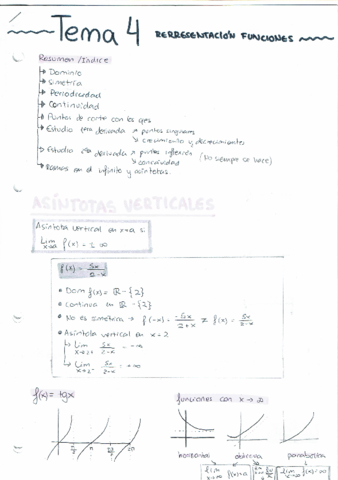 Tema 4 REPRESENTACIÓN FUNCIONES
Resumen/Indice
→ Dominio
→ Simetría
→ Periodicidad
→ Continuidad
→ Puntos de corte con los ejes
→ Estudio 1era derivada → puntos singulares
↘ crecimiento y decrecimientos
→ Estudio 2da derivada → puntos inflexión
↘ concavidad (No siempre se hace)
→ Ramas en el infinito y asíntotas.
ASÍNTOTAS VERTICALES
Asíntota vertical en x=a si
Lim x→a f(x) = ± ∞
f(x) = 5x/2-x
• Dom f(x) = ℝ - {2}
• Continua en ℝ - {2}
• No es simétrica → f(-x) = -5x/2+x ≠ f(x) = 5x/2-x
• Asíntota vertical en x = 2
Lim x→2+ 5x/2-x = -∞
Lim x→2- 5x/2-x = +∞
f(x) = tgx
funciones con x → ∞
horizontal oblicua parabólica